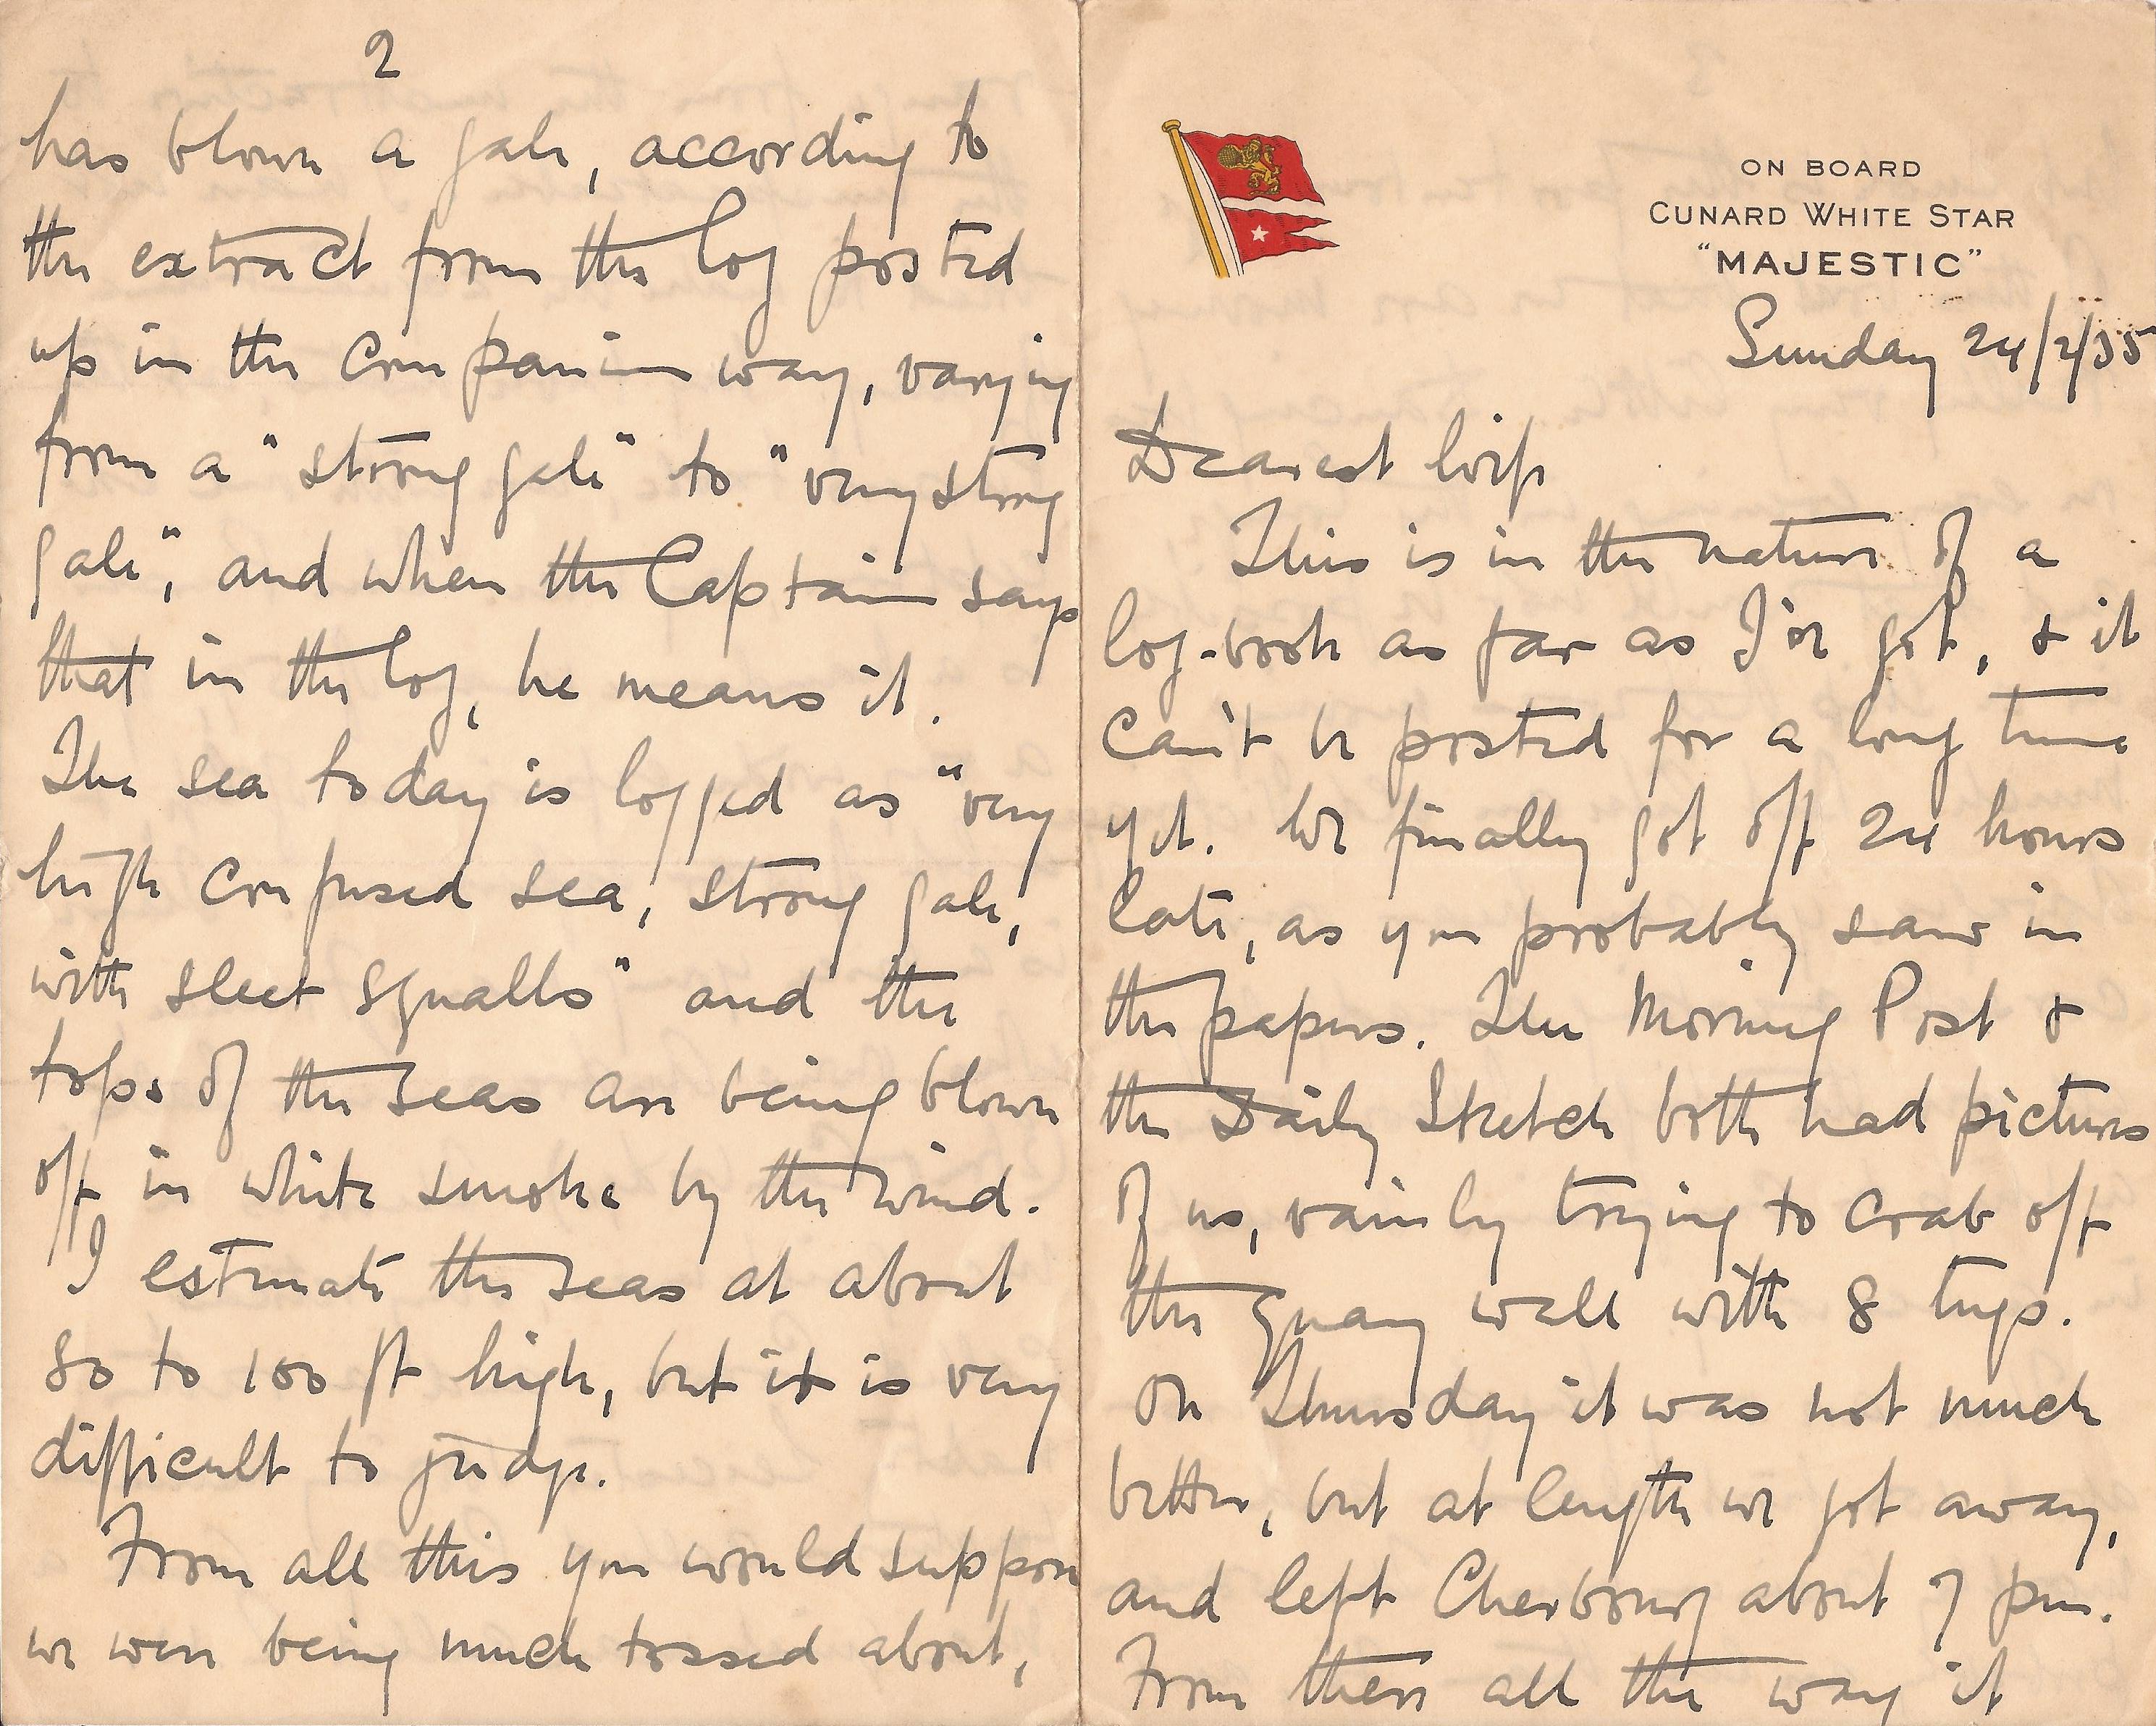 ON BOARD
CUNARD WHITE STAR
"MAJESTIC"
Sunday 24/2/35
Dearest
This is in the nature of a
log-book as far as I've got, & it
can't be posted for a long time
yet. We finally got off 24 hours
late, as you probably saw in
the papers. The Morning Post &
the Daily Sketch both had pictures
of us, vainly trying to crab off
the quay wall with 8 tugs.
On Thursday it was not much
better, but at length we got away,
and left Cherbourg about 7 pm.
From there all the way it
2
has blown a gale, according to
the extract from the log posted
up in the companion way, varying
from a "strong gale" to "very strong
gale", and when the Captain says
that in the log, he means it.
The sea today is logged as "very
high confused sea, strong gale,
with sleet squalls" and the
tops of the seas are being blown
off in white smoke by the wind.
I estimate the seas at about
80 to 100 ft high, but it is very
difficult to judge.
From all this you would suppose
we were being much tossed about,